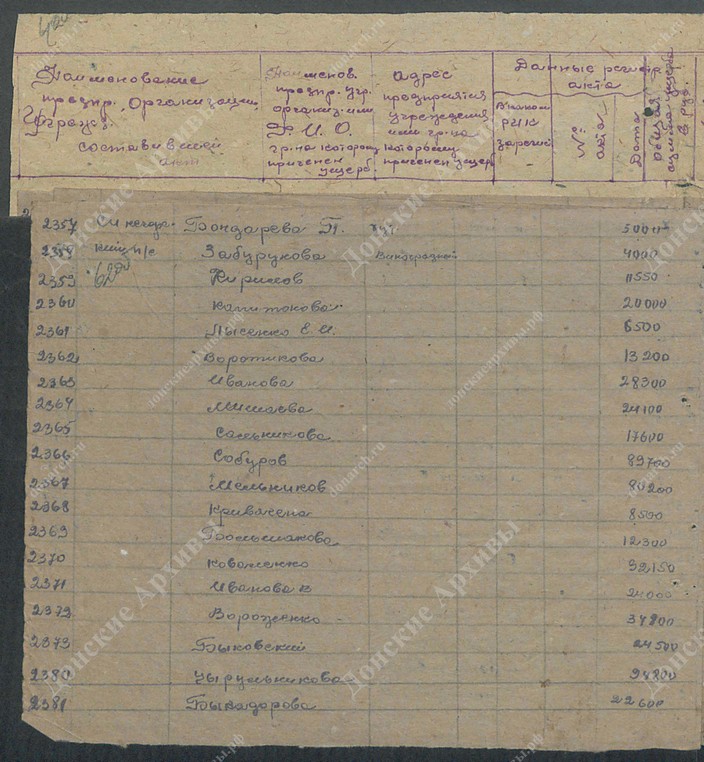 Наименование
предпр., Организации,
Учреж.
составившей
акт
Наименов.
предпр. учр.
организ. или
Ф. И. О.
гр-на которому
причинен
ущерб
адрес
предприятия
учреждения
или гр-на
которому
причинен ущерб
Данные регистр
акта
В каком
РИК
зарегис
№
акта
Дата
общая
сумма ущерба
в руб.
2357 Бондарева П. 5000
2358 Забурукова Виноградная 4000
2359 62 Кирилов 11550
2360 Капитонова 20000
2361 Лысенко Е. И. 6500
2362 Воротикова 13200
2363 Иванова 28300
2364 Мишаева 24100
2365 Сальникова 17600
2366 Сабуров 89700
2367 Мельников 80200
2368 Кривачена 8500
2369 Большакова 12300
2370 Коваленко 39150
2371 Иванова В 24000
2372 Вороженко 34800
2373 Быковский 24500
2380 Цырульникова 98800
2381 Быкадорова 22600
Донские Архивы
donarch.ru
донскиеархивы.рф